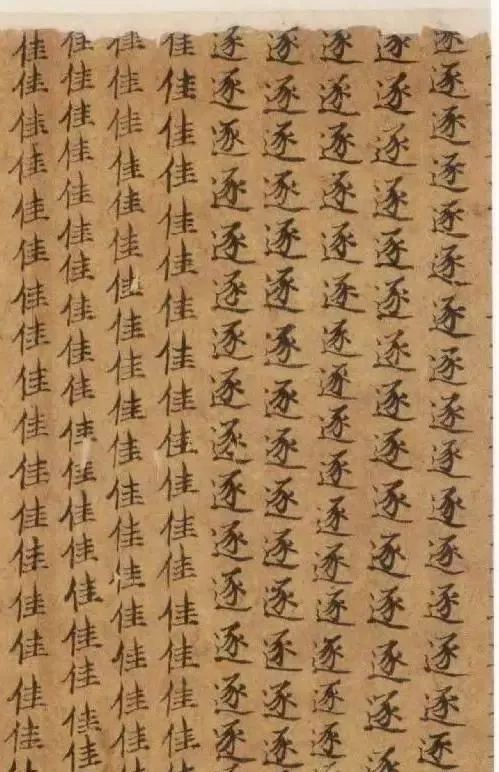 逐逐逐逐逐逐逐逐逐逐逐逐逐逐逐逐
逐逐逐逐逐逐逐逐逐逐逐逐逐逐逐
逐逐逐逐逐逐逐逐逐逐逐逐逐逐逐逐逐
逐逐逐逐逐逐逐逐逐逐逐逐逐逐逐
逐逐逐逐逐逐逐逐逐逐逐逐逐逐逐逐
佳佳佳佳佳佳佳佳佳佳佳佳佳佳佳佳佳佳
佳佳佳佳佳佳佳佳佳佳佳佳佳佳佳佳佳佳佳
佳佳佳佳佳佳佳佳佳佳佳佳佳佳佳佳佳佳佳
佳佳佳佳佳佳佳佳佳佳佳佳佳佳佳佳佳佳